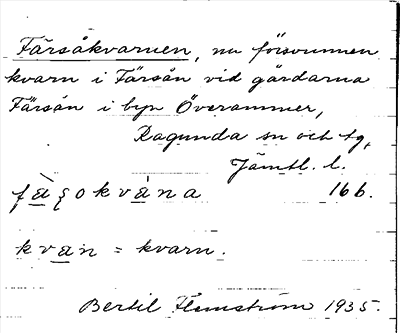 Färsåkvarnen, nu försvunnen
kvarn i Färsån vid gårdarna
Färsån i byn Överammer,
Ragunda sn och tg,
Jämtl. l.
166.
kvan = kvarn.
Bertil Flemström 1935.